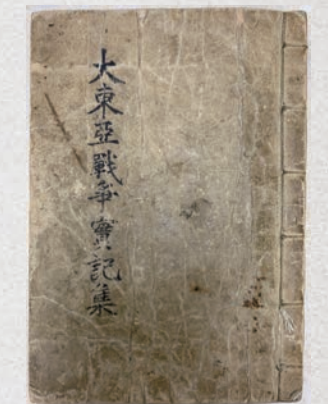 大東亞戰爭實記集